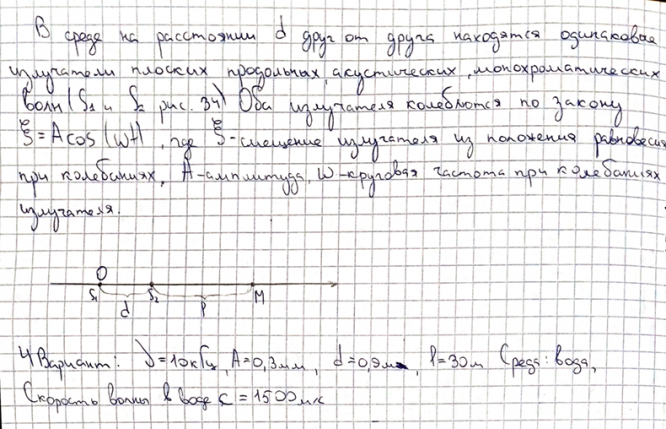 В среде на расстоянии d друг от друга находятся одинаковые
излучатели плоских продольных, акустических, монохроматических
волн (S1 и S2 рис. 34) Оба излучателя колеблются по закону
ξ = A cos (ωt), где ξ - смещение излучателя из положения равновесия
при колебаниях, A - амплитуда, ω - круговая частота при колебаниях
излучателя.
O
S1 S2 M
d l
4 Вариант: ν = 10 кГц, A = 0,3 мм, d = 0,9 м, l = 30 м Среда: вода,
Скорость волны в воде c = 1500 м/с